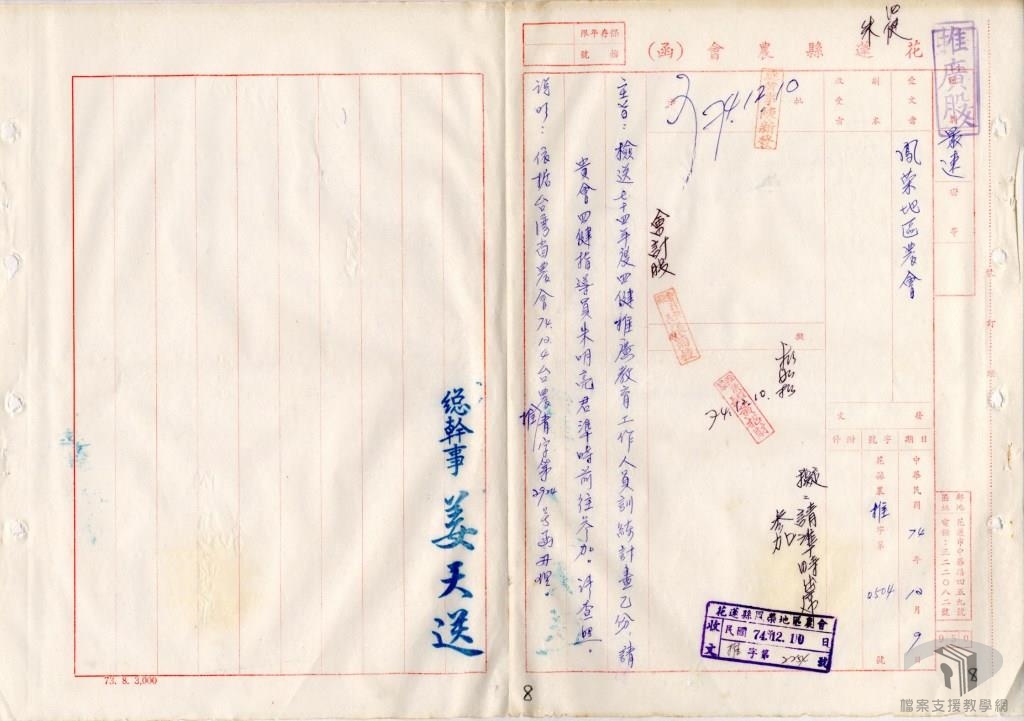 花蓮縣農會(函)
保存年限
檔號
推廣股
最速
受文者
鳳榮地區農會
副本
收受者
批
74.12.10
會計股
擬
74.12.10.
擬:請準時出席
參加
發文
日期
中華民國74年12月9日
字號
花縣農推字第0504號
附件
郵址:花蓮市中華路四五九號
電話:三二二〇八二號
主旨:檢送七十四年度四健推廣教育工作人員訓練計畫乙份,請
貴會四健指導員朱明亮君準時前往參加。請查照。
說明:依據台灣省農會74.12.4台農青推字第2924號函辦理。
總幹事 姜天送
花蓮縣鳳榮地區農會
收文
民國74.12.10日
推字第2234號
73. 8. 3,000
8
8
檔案支援教學網